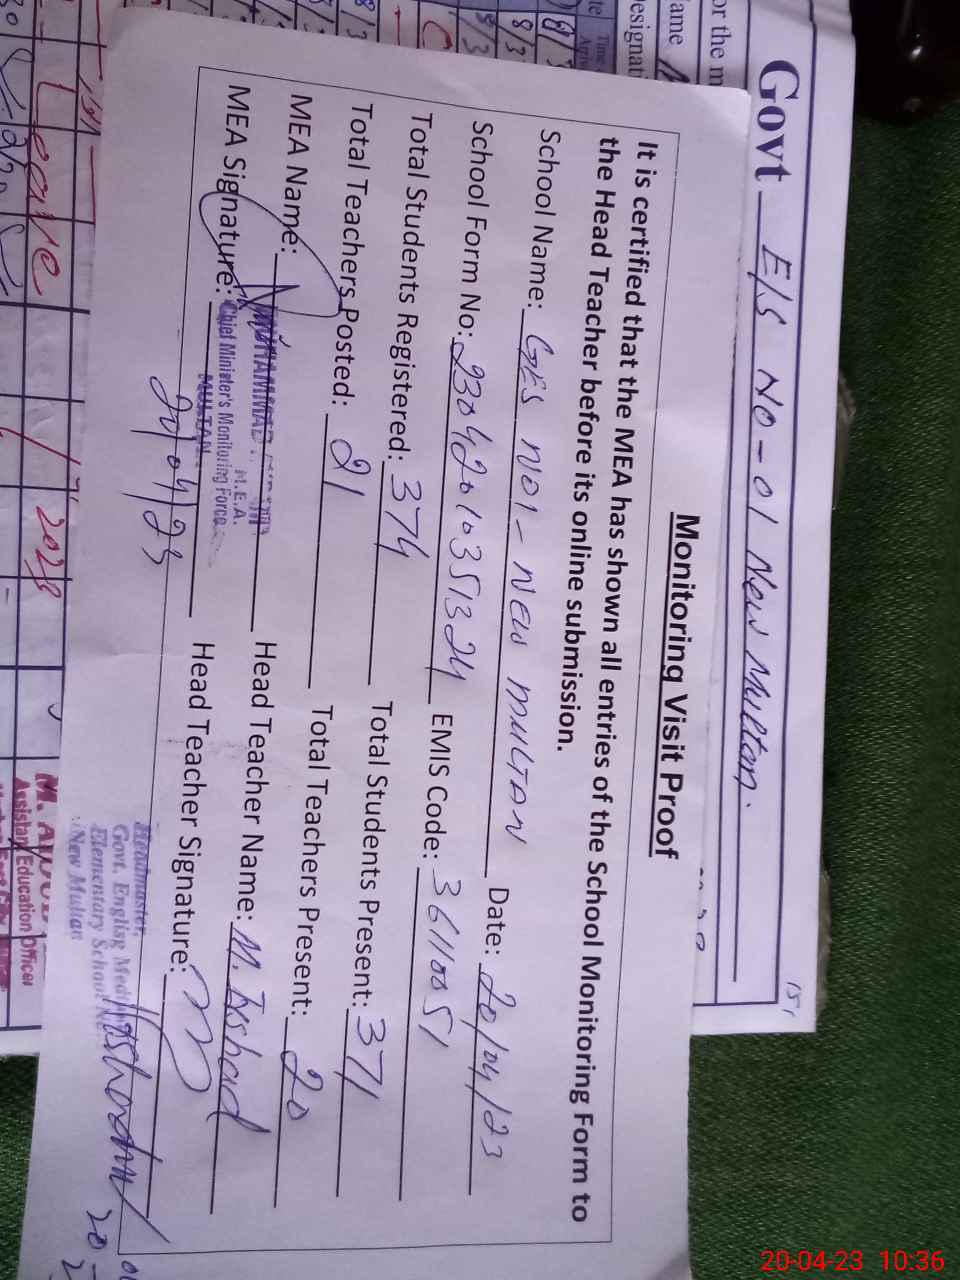 Govt E/S No-01 New Multan.
151
or the m
ame
esignati
Time
Monitoring Visit Proof
It is certified that the MEA has shown all entries of the School Monitoring Form to
the Head Teacher before its online submission.
School Name: GES NO1- NEW MULTAN Date: 20/04/23
School Form No: 23042010351324 EMIS Code: 36110051
Total Students Registered: 374 Total Students Present: 371
Total Teachers Posted: 21 Total Teachers Present: 20
MEA Name: MUHAMMAD Head Teacher Name: M. Irshad
M.E.A.
MEA Signature: Chief Minister's Monitoring Force Head Teacher Signature:
MULTAN
20/04/23
Headmaster,
Govt. English Medi
Elementary School No.
New Multan
Leave
2023
Assistant Education Officer
20-04-23 10:36